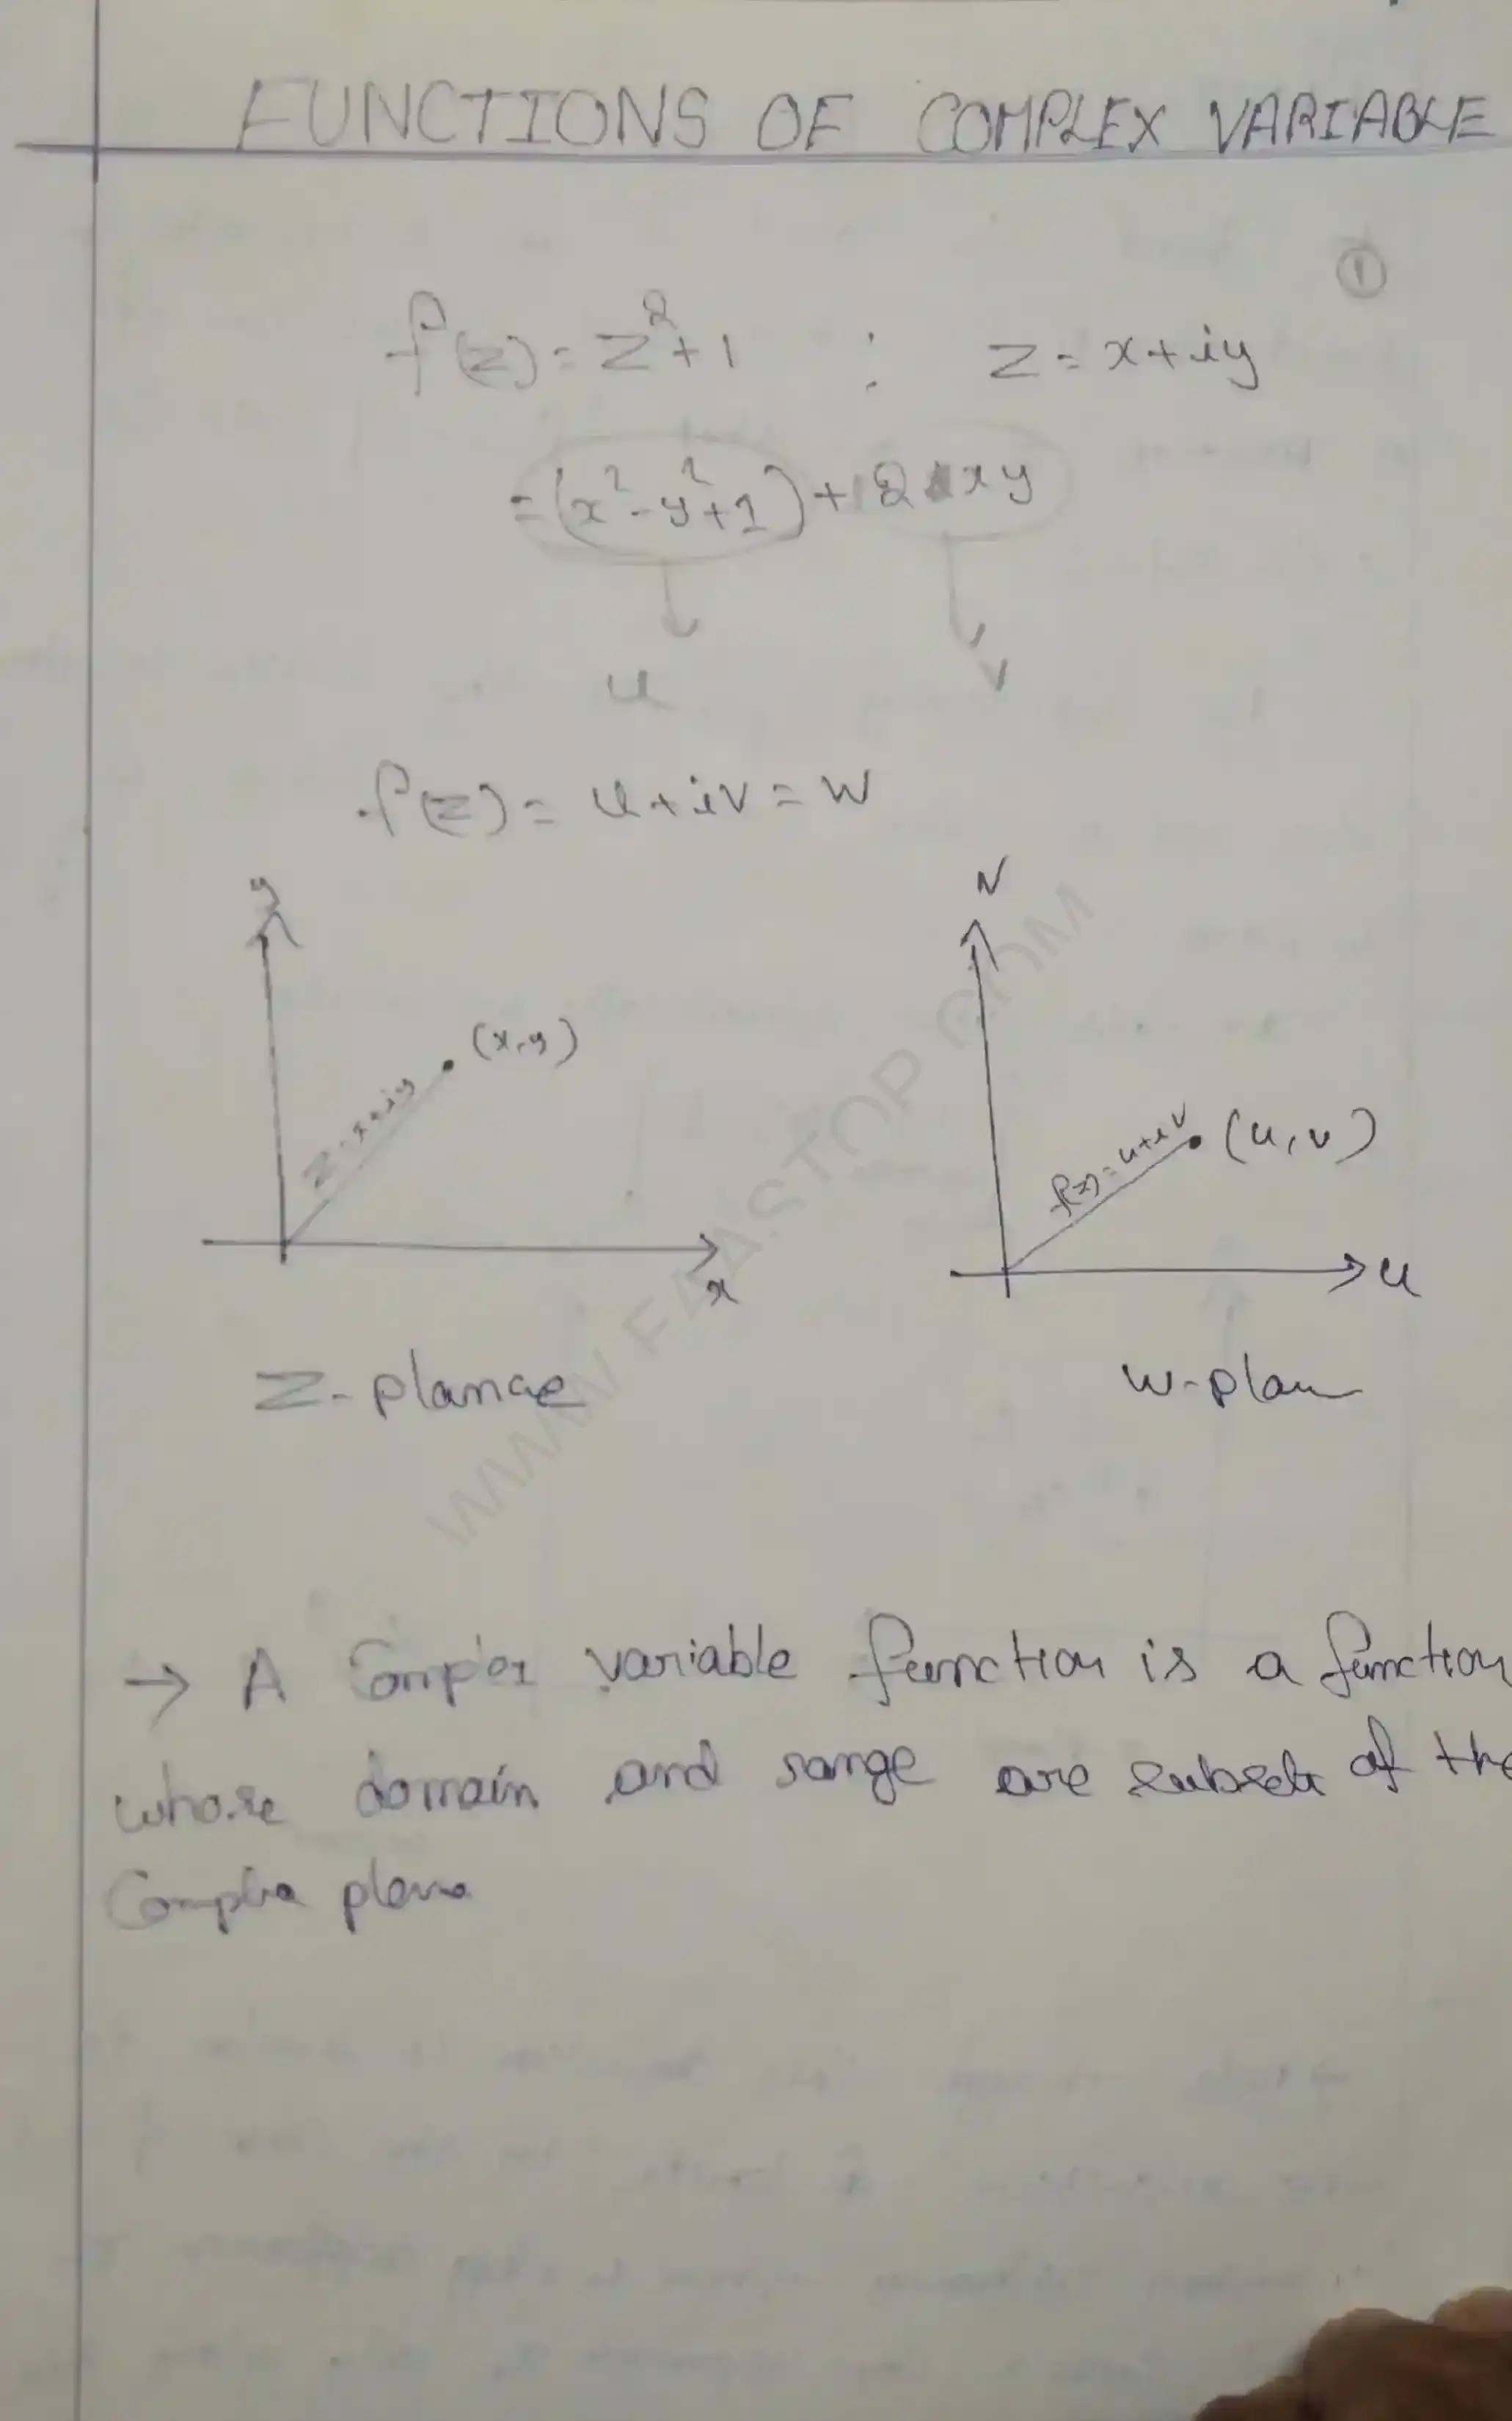 FUNCTIONS OF COMPLEX VARIABLE
①
f(z) = z² + 1 : z = x + iy
= (x² - y² + 1) + i2xy
u v
f(z) = u + iv = w
y v
(x, y)
z = x + iy
f(z) = u + iv (u, v)
x u
z-planae w-plan
→ A Complex variable function is a function
whose domain and range are subsets of the
Complex plane
WWW.FAASTOP.COM